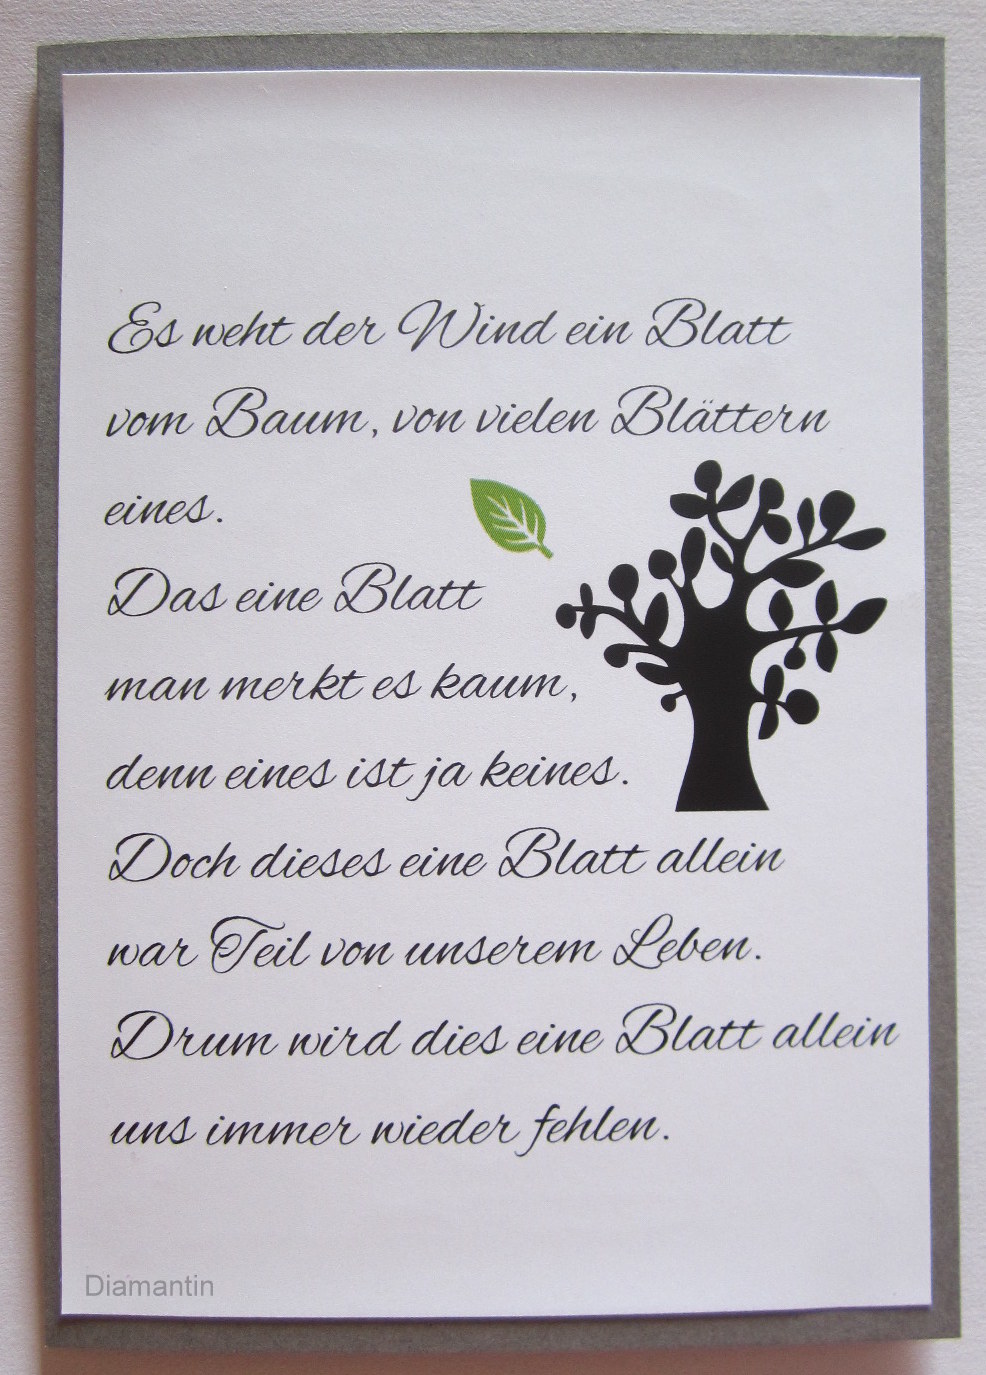 Es weht der Wind ein Blatt
vom Baum, von vielen Blättern
eines.
Das eine Blatt
man merkt es kaum,
denn eines ist ja keines.
Doch dieses eine Blatt allein
war Teil von unserem Leben.
Drum wird dies eine Blatt allein
uns immer wieder fehlen.
Diamantin